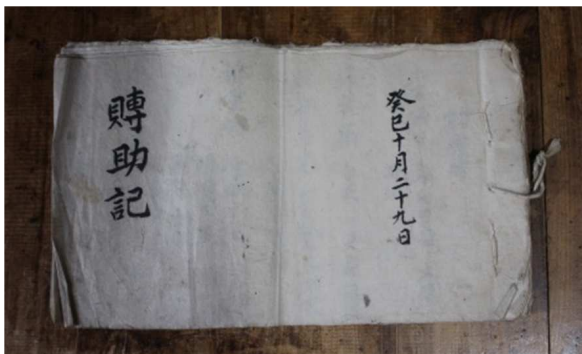 癸巳十月二十九日
賻助記